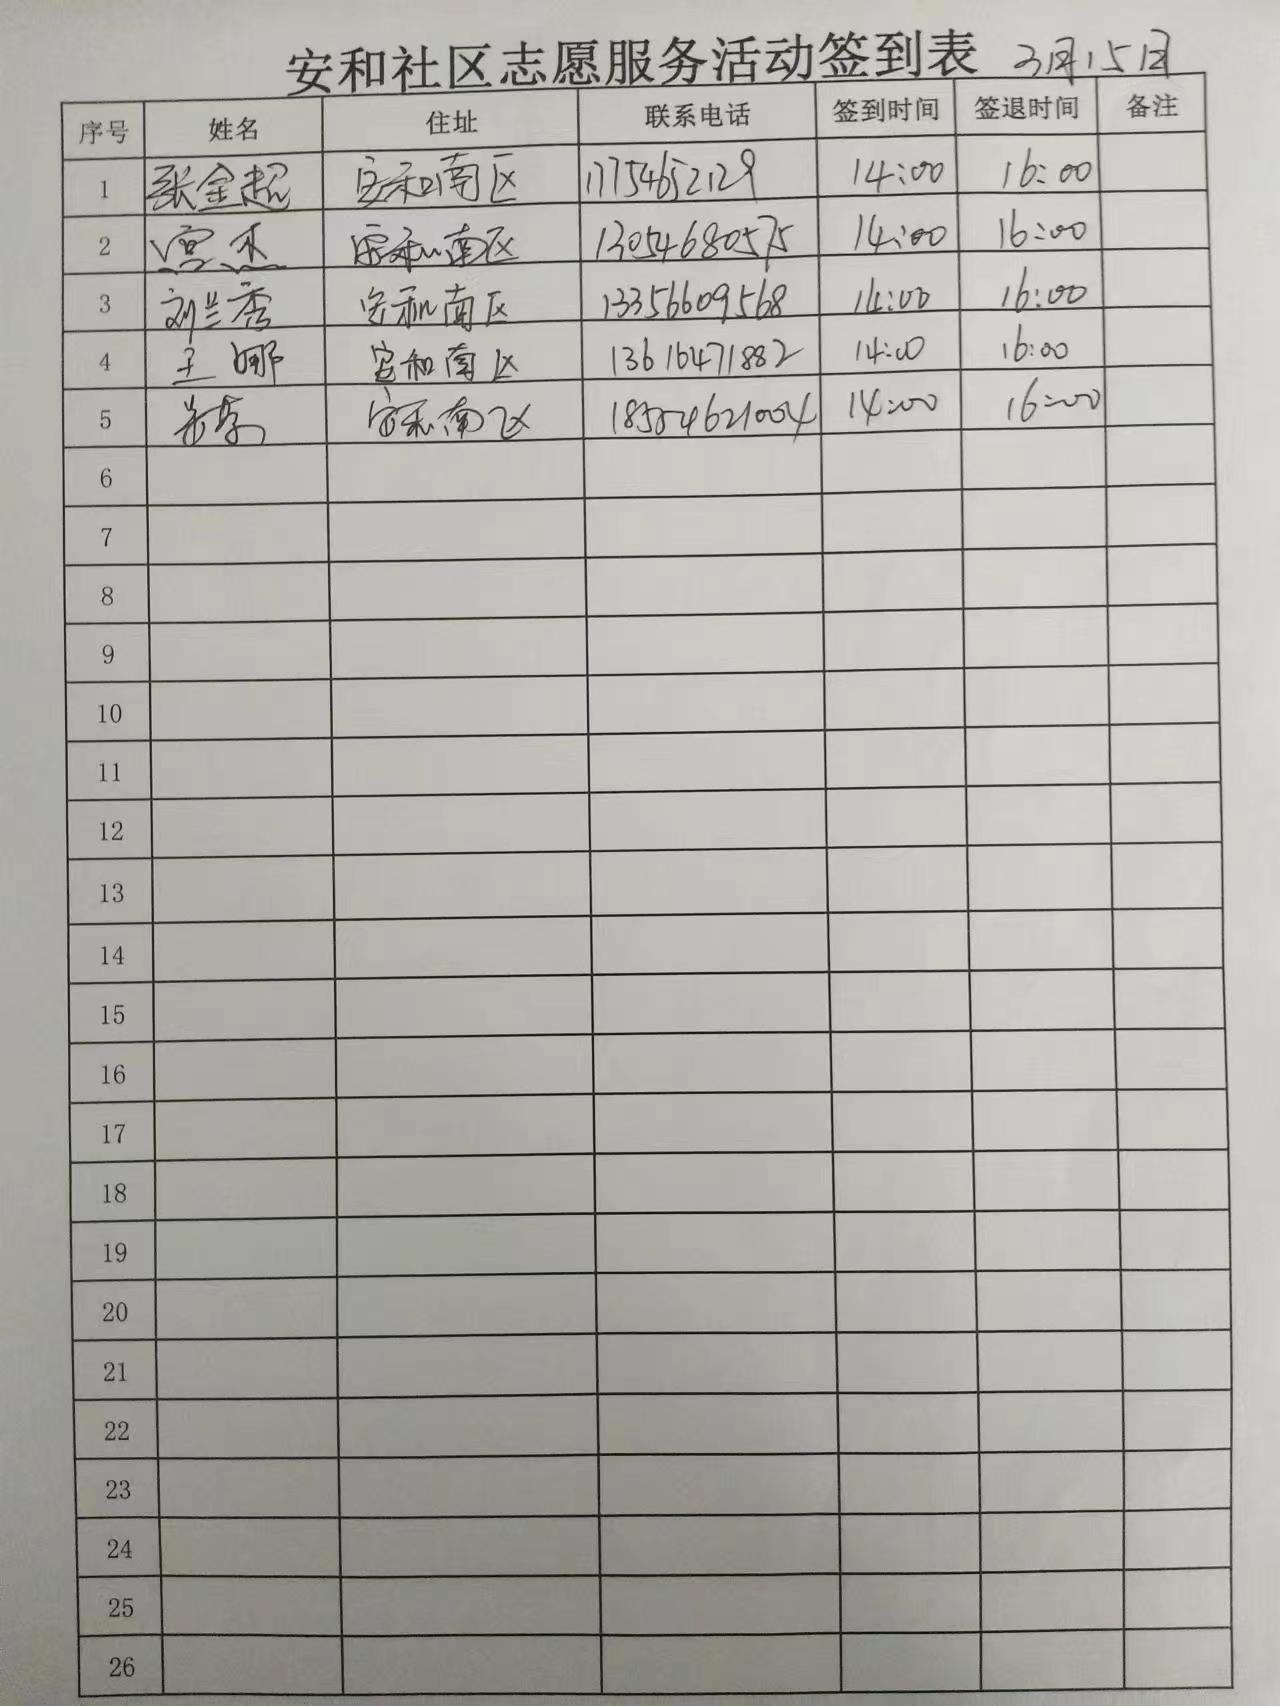 安和社区志愿服务活动签到表 3月15日
序号 姓名 住址 联系电话 签到时间 签退时间 备注
1 张金超 安和南区 17754652129 14:00 16:00
2 安和南区 13054680575 14:00 16:00
3 刘兰秀 安和南区 13356609568 14:00 16:00
4 王娜 安和南区 13616471882 14:00 16:00
5 安和南区 18554621004 14:00 16:00
6
7
8
9
10
11
12
13
14
15
16
17
18
19
20
21
22
23
24
25
26